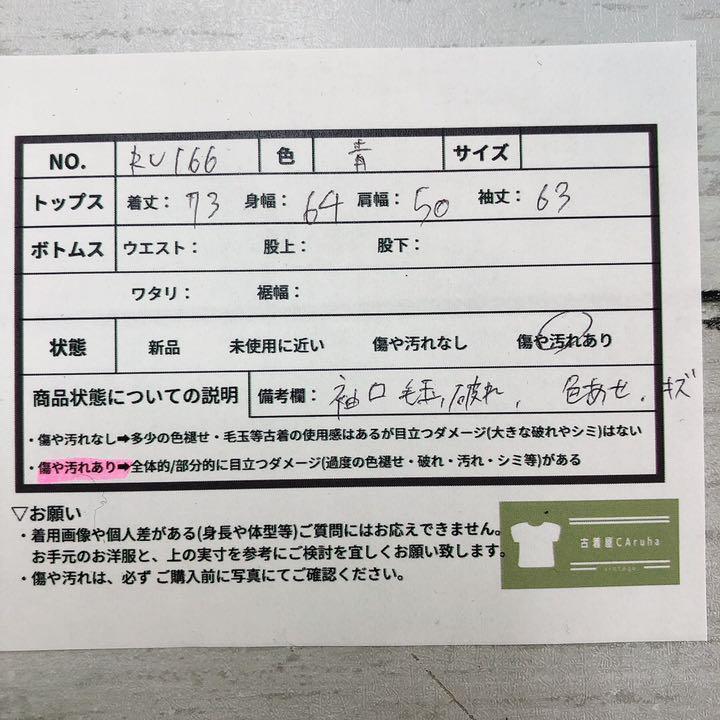 NO. RU166 色 青 サイズ
トップス 着丈：73 身幅：64 肩幅：50 袖丈：63
ボトムス ウエスト： 股上： 股下：
ワタリ： 裾幅：
状態 新品 未使用に近い 傷や汚れなし 傷や汚れあり
商品状態についての説明 備考欄：袖口毛玉，破れ， 色あせ．キズ
・傷や汚れなし➡多少の色褪せ・毛玉等古着の使用感はあるが目立つダメージ(大きな破れやシミ)はない
・傷や汚れあり➡全体的/部分的に目立つダメージ(過度の色褪せ・破れ・汚れ・シミ等)がある
▽お願い
・着用画像や個人差がある(身長や体型等)ご質問にはお応えできません。
お手元のお洋服と、上の実寸を参考にご検討を宜しくお願い致します。
・傷や汚れは、必ず ご購入前に写真にてご確認ください。
古着屋CAruha
vintage